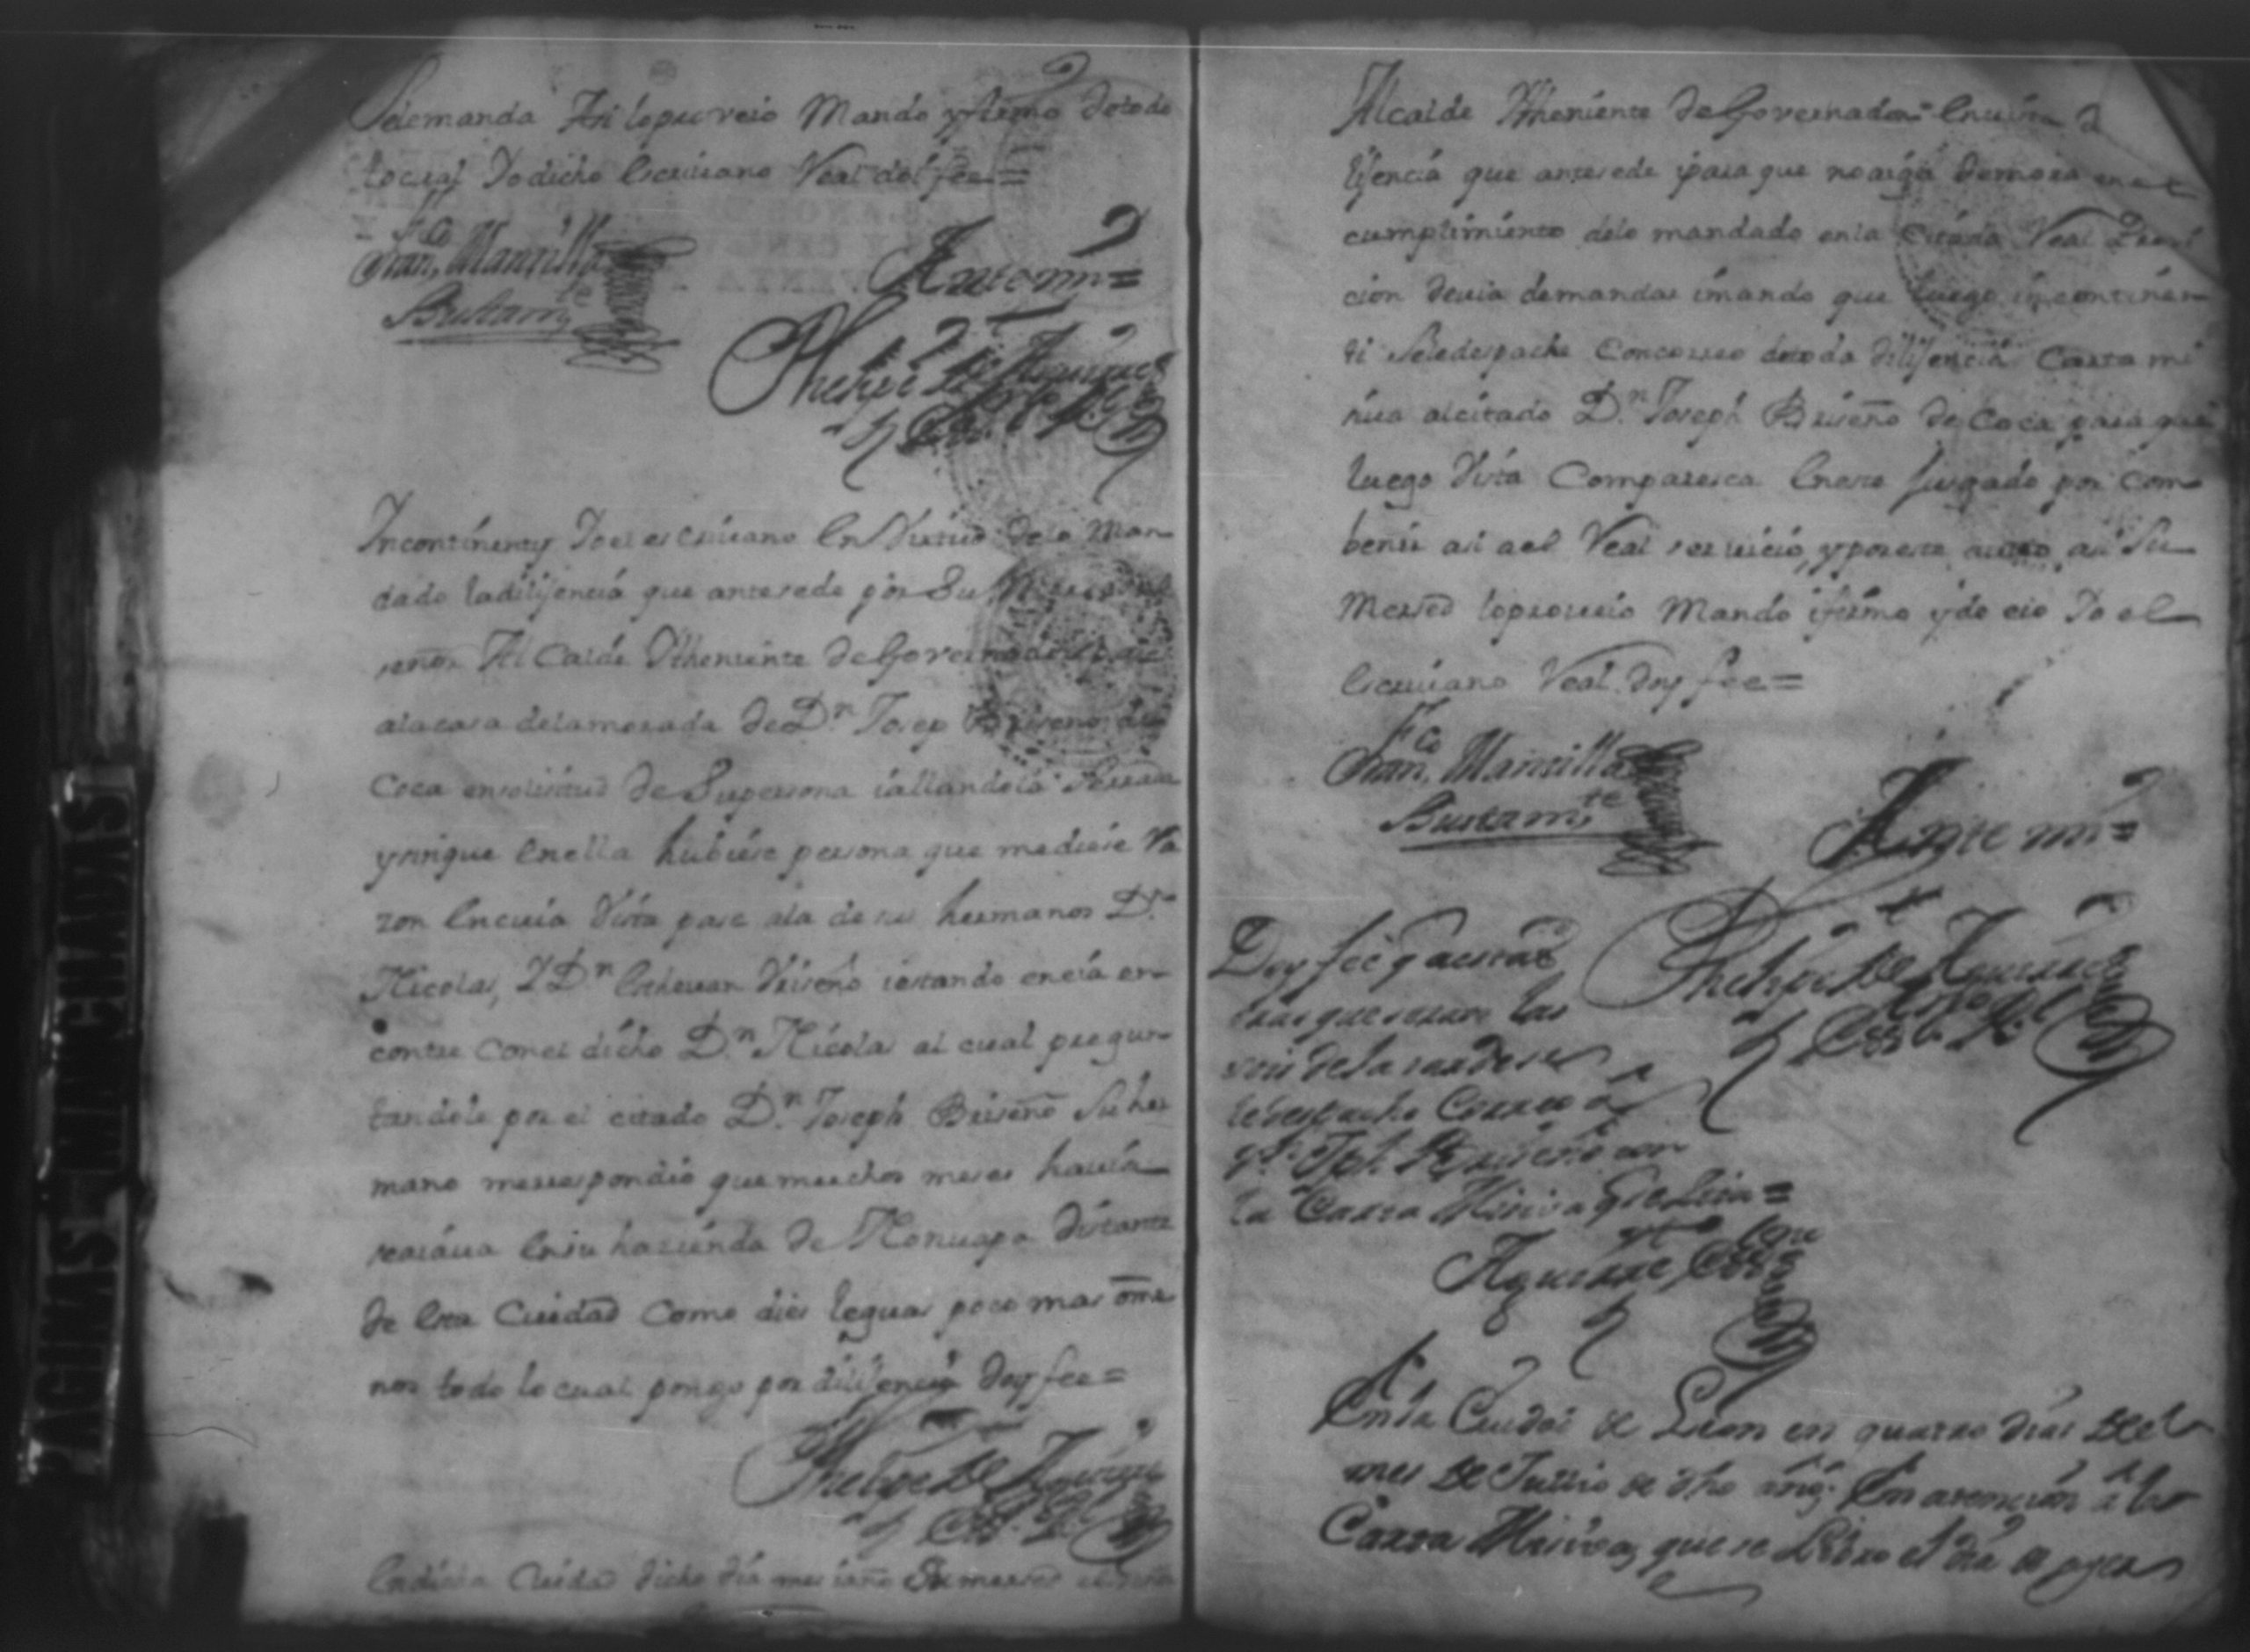 Sedemanda Asi loproveio Mando yfirmo detodo
locual Yo dicho Escriuano Real doi fee=
Fco
Fran, Mansilla
Bustamte
Antemi=
Phelipe de Aguirre
Incontinenty Yo el escriuano En Virtud de lo Man
dado ladilijencia que antesede por Su Merced el
señor Alcalde Theniente de Governador
alacasa delamorada de Dn Josep Briseño de
Coca ensolisitud de Supersona iallandola Serrada
ysinque Enella hubiese persona que mediese Ra
zon Encuia Vista pase ala de sus hermanos Dn
Nicolas, Y Dn Esthevan Briseño iestando encia en
contre conel dicho Dn Nicolas al cual pregun
tandole por el citado Dn Joseph Briseño Suher
mano merrespondio que muchos meses hauia
estaua Ensu hasienda de Distante
de Esta Ciudad Como dies leguas poco mas ome
nos todo lo cual pongo por dilijencia doy fee=
Phelipe de Aguirre
Endicha Ciudad dicho dia mes iaño Su merced el señor
Alcalde Theniente de Governador Envista
lijencia que antesede para que noaiga demora en el
cumplimiento delo mandado enla Citada Real
cion deuia demandar imando que luego incontinen
ti Seledespache Concorreo detoda dilijencia Carta mi
siua alcitado Dn Joseph Briseño de Coca para que
luego Vista Comparesca Eneste Jusgado por com
benir asi ael Real seruicio, yporeste auto asi Su
Merced loproueio Mando ifirmo yde eio Yo el
Escriuano Real doy fee=
Fco
Fran, Mansilla
Bustamte
Ante mi=
Phelipe de Aguirre
Doy fee q
que seran las
seis dela tarde se
ledespacho Correo a
Dn Jph. Briseño con
la Carta Misiva
Aguirre
En la Ciudad de Leon en quatro dias del
mes de Jullio de dho año; En atencion a la
Carta Misiva, que se Libro el dia de ayer
PAGINAS MANCHADAS